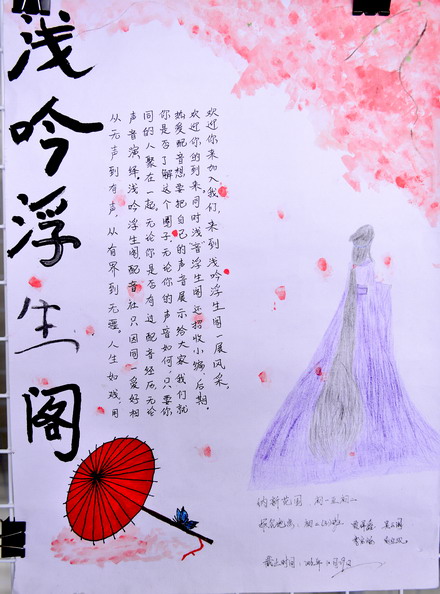 浅吟浮生阁
从无声到有声，从有界到无疆。人生如戏，用
声音演绎浅吟浮生阁配音社只因同一爱好相
同的人聚在一起。无论你是否有过配音经历，无论
你是否了解这个圈子，无论你的声音如何，只要你
热爱配音想要把自己的声音展示给大家我们就
欢迎你的到来同时浅音浮生阁还招收小编，后期。
欢迎你来加入我们，来到浅吟浮生阁一展风采。
纳新范围：初一至初二
报名地点：初二
截止时间：